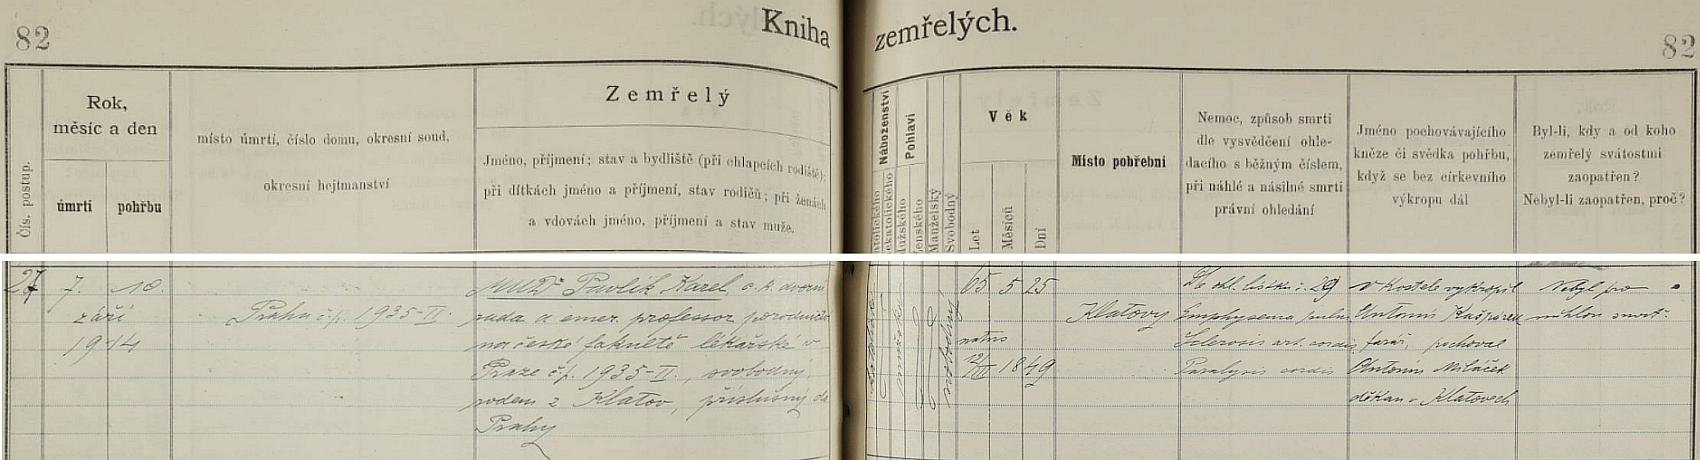 82
Kniha zemřelých.
82
Čís. postup.
Rok,
měsíc a den
úmrtí
pohřbu
místo úmrtí, číslo domu, okresní soud,
okresní hejtmanství
Zemřelý
Jméno, příjmení; stav a bydliště (při chlapcích rodiště);
při dítkách jméno a příjmení, stav rodičů; při ženách
a vdovách jméno, příjmení a stav muže.
Náboženství
katolického
nekatolického
Pohlaví
mužského
ženského
Manželský
Svobodný
Věk
Let
Měsíců
Dní
Místo pohřební
Nemoc, způsob smrti
dle vysvědčení ohle-
dacího s běžným číslem,
při náhlé a násilné smrti
právní ohledání
Jméno pochovávajícího
kněze či svědka pohřbu,
když se bez církevního
výkropu dál
Byl-li, kdy a od koho
zemřelý svátostmi
zaopatřen?
Nebyl-li zaopatřen, proč?
27
7. 10.
září
1914
Praha č.p. 1935-II.
MUDr Pavlík Karel c. k. dvorní
rada a emer. professor porodnictví
na české fakultě lékařské v
Praze č.p. 1935-II., svobodný,
rodem z Klatov, příslušný do
Prahy
katolické
mužské
svobodný
65 5 25
natus
12/III 1849
Klatovy
Dle ohl. lístku č. 29
Emphysema pulm.
Sclerosis art. cordis
Paralysis cordis
v kostele vykropil
Antonín Kašpárek
farář, pochoval
Antonín Miláček
děkan v Klatovech
Nebyl pro
náhlou smrt.